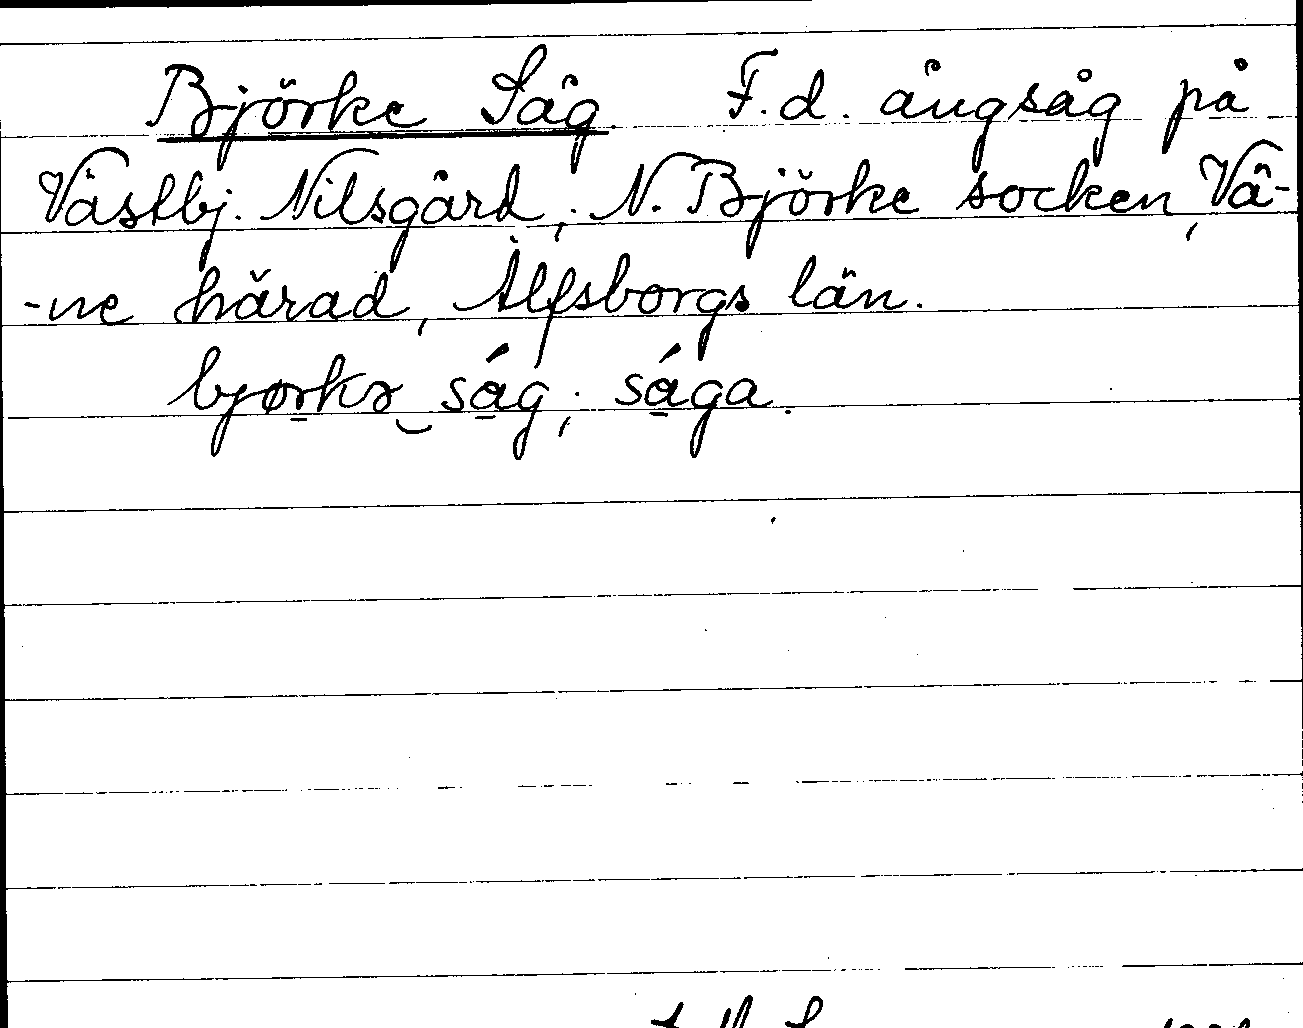 Björke Såg. F.d. ångsåg på
Västbj. Nilsgård; N. Björke socken, Vä-
-ne härad, Älfsborgs län.
bjørkɘ ság; sága.